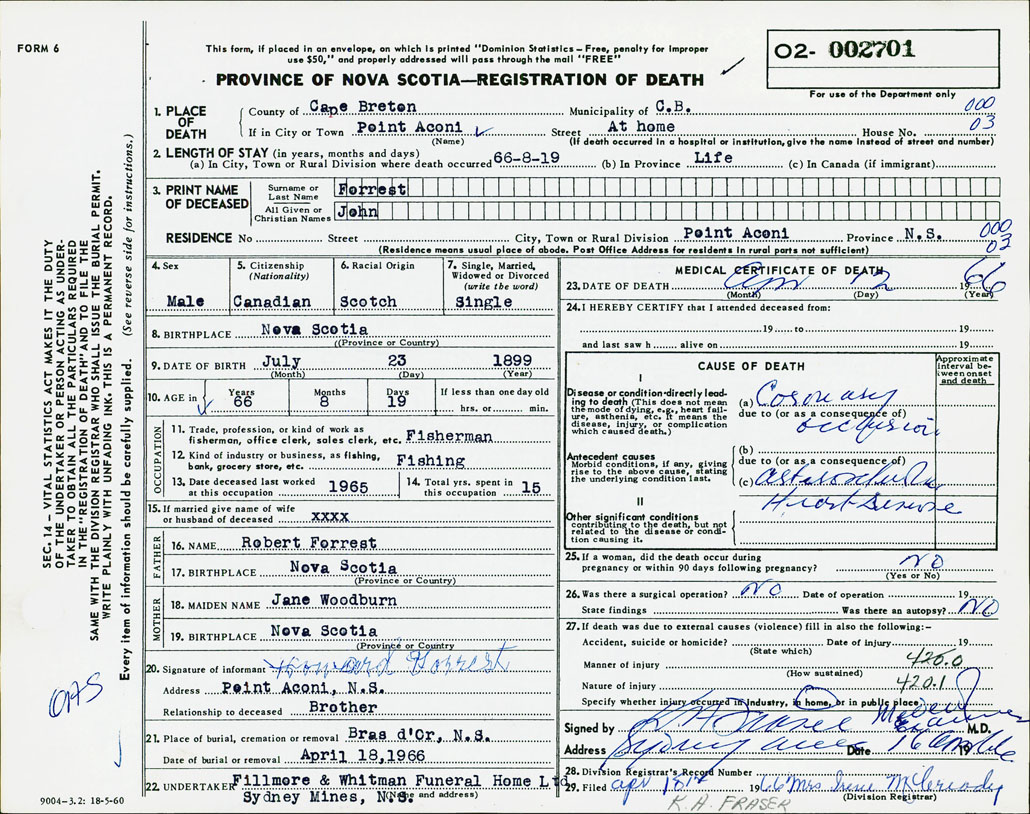 FORM 6
This form, if placed in an envelope, on which is printed "Dominion Statistics – Free, penalty for improper
use $50," and properly addressed will pass through the mail "FREE"
O2- 002701
PROVINCE OF NOVA SCOTIA—REGISTRATION OF DEATH
For use of the Department only
1. PLACE OF DEATH
County of Cape Breton Municipality of C.B. 000
If in City or Town Point Aconi Street At home House No. 03
(Name) (If death occurred in a hospital or institution, give the name instead of street and number)
2. LENGTH OF STAY (in years, months and days)
(a) In City, Town or Rural Division where death occurred 66-8-19 (b) In Province Life (c) In Canada (if immigrant)
3. PRINT NAME OF DECEASED
Surname or Last Name Forrest
All Given or Christian Names John
RESIDENCE No Street City, Town or Rural Division Point Aconi Province N.S. 000
03
(Residence means usual place of abode. Post Office Address for residents in rural parts not sufficient)
4. Sex
Male
5. Citizenship
(Nationality)
Canadian
6. Racial Origin
Scotch
7. Single, Married,
Widowed or Divorced
(write the word)
Single
8. BIRTHPLACE Nova Scotia
(Province or Country)
9. DATE OF BIRTH July 23 1899
(Month) (Day) (Year)
10. AGE in
Years
66
Months
8
Days
19
If less than one day old
hrs. or min.
OCCUPATION
11. Trade, profession, or kind of work as
fisherman, office clerk, sales clerk, etc. Fisherman
12. Kind of industry or business, as fishing,
bank, grocery store, etc. Fishing
13. Date deceased last worked
at this occupation 1965
14. Total yrs. spent in
this occupation 15
15. If married give name of wife
or husband of deceased xxxx
FATHER
16. NAME Robert Forrest
17. BIRTHPLACE Nova Scotia
(Province or Country)
MOTHER
18. MAIDEN NAME Jane Woodburn
19. BIRTHPLACE Nova Scotia
(Province or Country)
20. Signature of informant Howard Forrest
Address Point Aconi, N.S.
Relationship to deceased Brother
21. Place of burial, cremation or removal Bras d'Or, N.S.
Date of burial or removal April 18,1966
22. UNDERTAKER Fillmore & Whitman Funeral Home Ltd
Sydney Mines, N.S.
(Name and address)
MEDICAL CERTIFICATE OF DEATH
23. DATE OF DEATH Apr 12 1966
(Month) (Day) (Year)
24. I HEREBY CERTIFY that I attended deceased from:
19 to 19
and last saw h alive on 19
CAUSE OF DEATH
Approximate interval between onset and death
I
Disease or condition directly leading to death (This does not mean
the mode of dying, e.g., heart failure, asthenia, etc. It means the
disease, injury, or complication
which caused death.)
(a) Coronary
due to (or as a consequence of)
occlusion
Antecedent causes
Morbid conditions, if any, giving
rise to the above cause, stating
the underlying condition last.
(b)
due to (or as a consequence of)
(c)
Heart Disease
II
Other significant conditions
contributing to the death, but not
related to the disease or condition causing it.
25. If a woman, did the death occur during
pregnancy or within 90 days following pregnancy? NO
(Yes or No)
26. Was there a surgical operation? NO Date of operation 19
State findings Was there an autopsy? NO
27. If death was due to external causes (violence) fill in also the following:-
Accident, suicide or homicide? Date of injury 19
(State which)
Manner of injury 420.0
(How sustained)
Nature of injury 420.1
Specify whether injury occurred in industry, in home, or in public place
Signed by K A Fraser Medical Examiner M.D.
Address Sydney Mines Date 16 19
28. Division Registrar's Record Number
29. Filed apr 18th 1966 Mrs Irene McCready
(Division Registrar)
K.A. FRASER
SEC. 14 – VITAL STATISTICS ACT MAKES IT THE DUTY
OF THE UNDERTAKER OR PERSON ACTING AS UNDER-
TAKER TO OBTAIN ALL THE PARTICULARS REQUIRED
IN THE "REGISTRATION OF DEATH" AND TO FILE THE
SAME WITH THE DIVISION REGISTRAR WHO SHALL ISSUE THE BURIAL PERMIT.
WRITE PLAINLY WITH UNFADING INK. THIS IS A PERMANENT RECORD.
Every item of information should be carefully supplied. (See reverse side for instructions.)
9004-3.2: 18-5-60